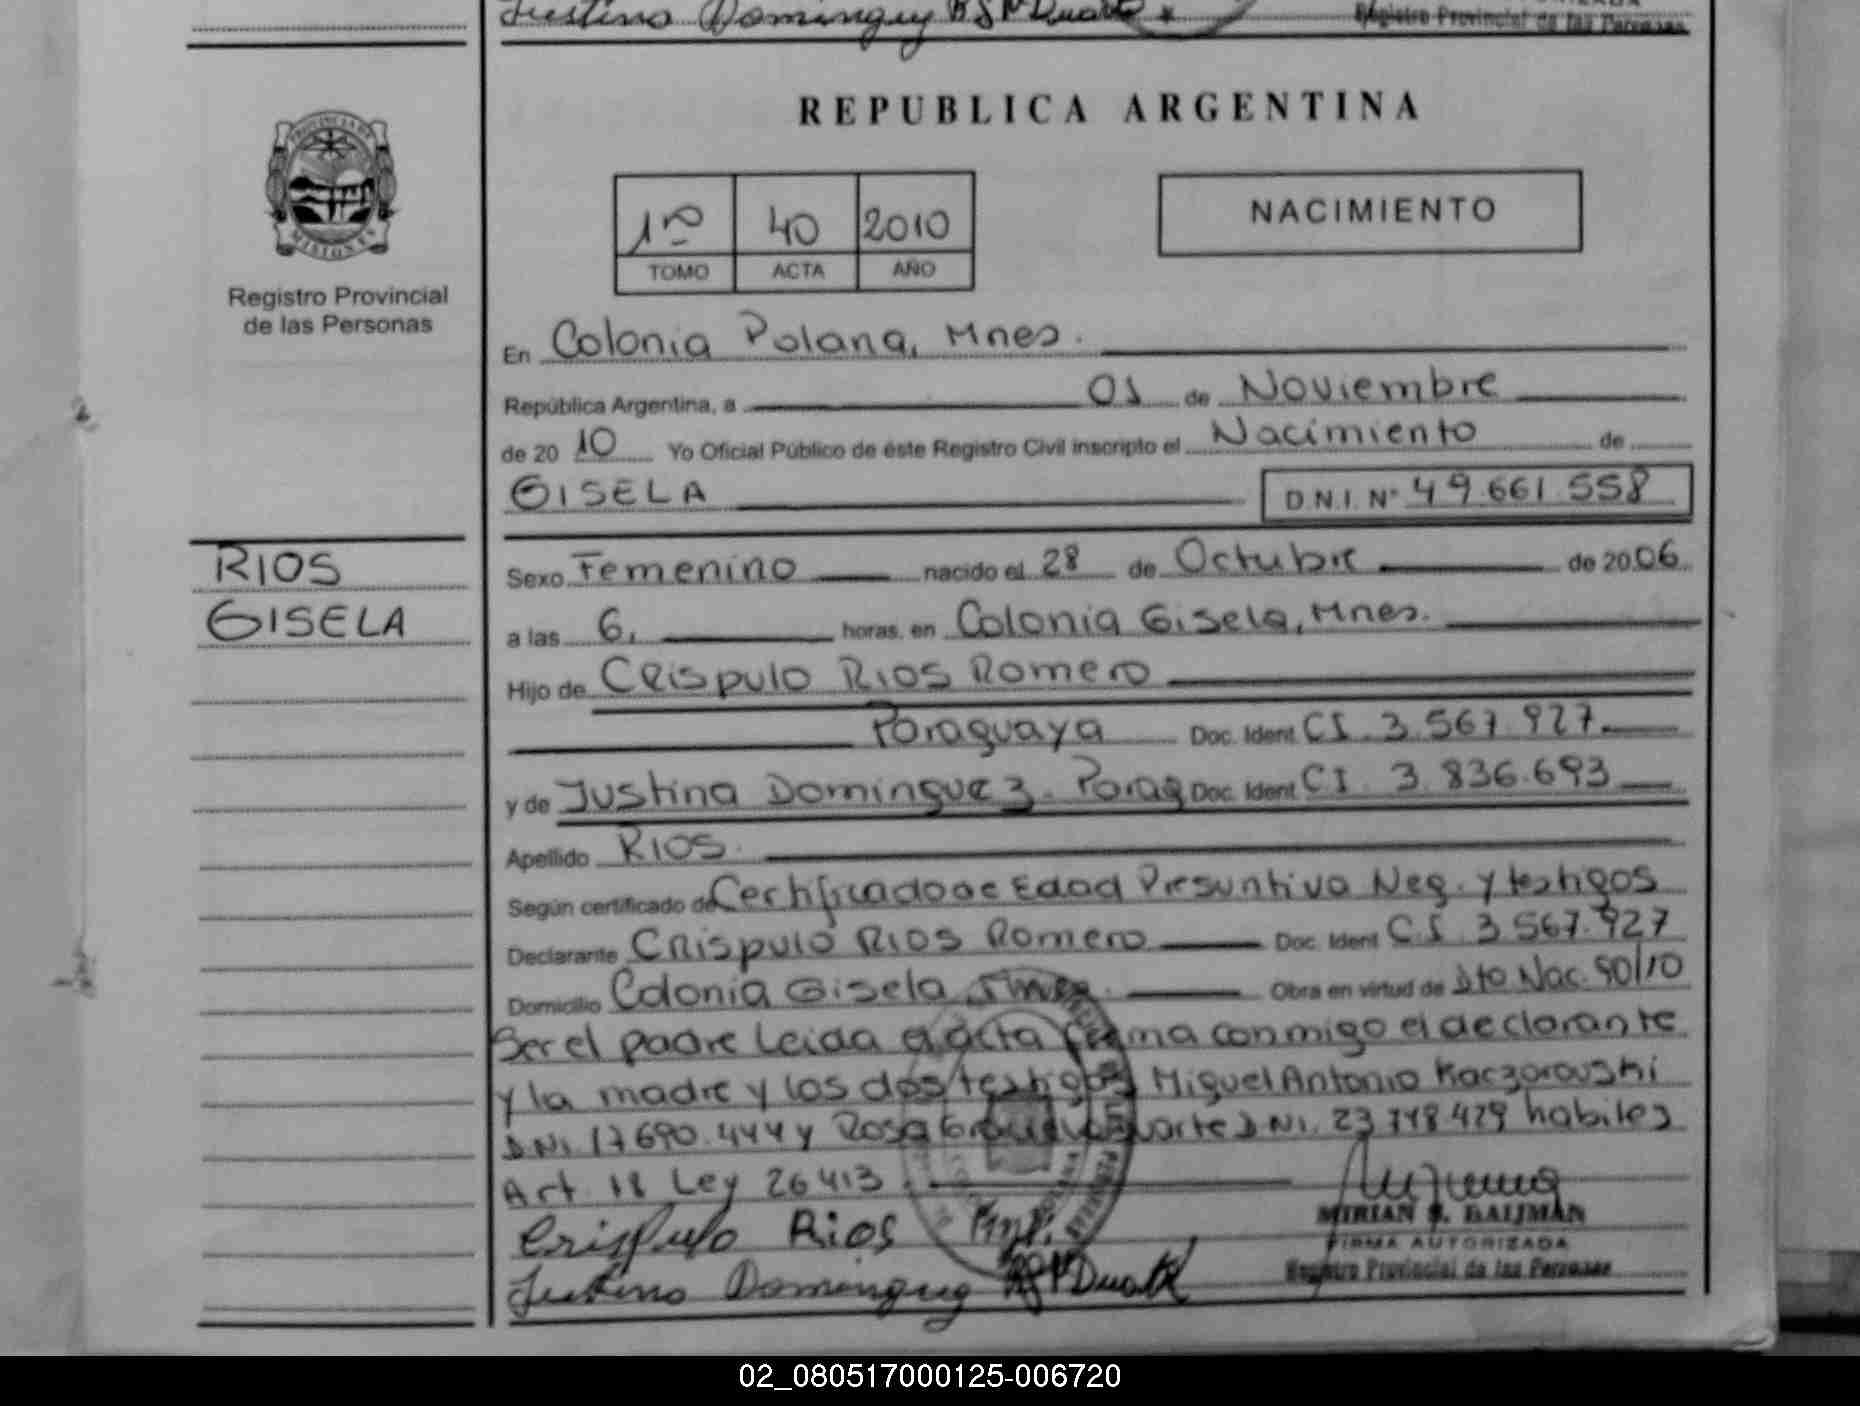 Justina Dominguez RSM Duarte
Registro Provincial de las Personas
PROVINCIA DE
MISIONES
Registro Provincial
de las Personas
REPUBLICA ARGENTINA
1ro 40 2010
TOMO ACTA AÑO
NACIMIENTO
En Colonia Polana, Mnes.
República Argentina, a 01 de Noviembre
de 20 10 Yo Oficial Público de éste Registro Civil inscripto el Nacimiento de
GISELA D.N.I. Nº 49.661.558
RIOS
GISELA
Sexo Femenino nacido el 28 de Octubre de 20 06
a las 6, horas, en Colonia Gisela, Mnes.
Hijo de Crispulo Rios Romero
Paraguaya Doc. Ident CI. 3.567.927
y de Justina Dominguez. Parag Doc. Ident CI. 3.836.693
Apellido RIOS.
Según certificado de Certificado de Edad Presuntiva Neg. y testigos
Declarante Crispulo Rios Romero Doc. Ident C.I. 3.567.927
Domicilio Colonia Gisela Mnes. Obra en virtud de Dto Nac. 90/10
Ser el padre Leida el acta firma conmigo el declarante
y la madre y los dos testigos Miguel Antonio Kaczorouski
D.Ni. 17 690.444 y Rosa Duarte D.Ni. 23 748.429 habiles
Art. 18 Ley 26413
Crispulo Rios
MIRIAN S. BAIJMAN
FIRMA AUTORIZADA
Registro Provincial de las Personas
Justina Dominguez RSM Duarte
02_080517000125-006720